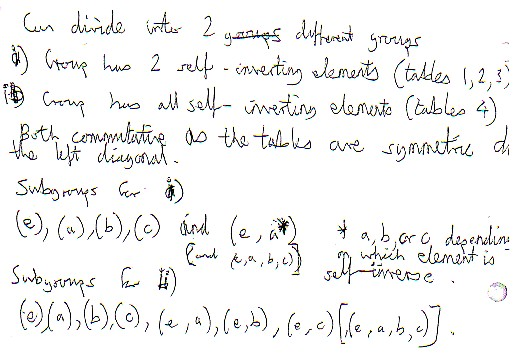 Can divide into 2 groups different groups
i) Group has 2 self-inverting elements (tables 1,2,3)
ii) Group has all self-inverting elements (tables 4)
Both commutative as the tables are symmetric
the left diagonal.
Subgroups for i)
(e), (a), (b), (c) and (e, a*)
[and (e, a, b, c)]
* a, b, or c depending
on which element is
self-inverse.
Subgroups for ii)
(e)(a), (b), (c), (e, a), (e, b), (e, c) [(e, a, b, c)].